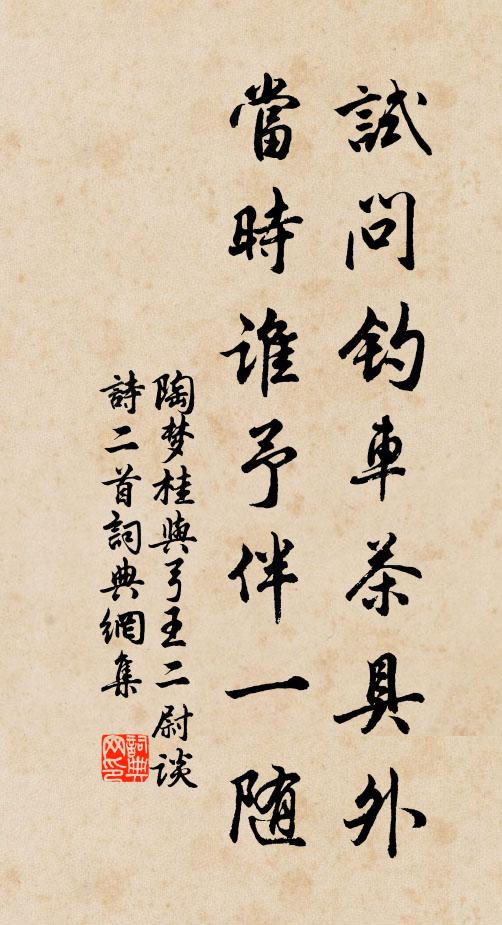 試問釣車茶具外
當時誰予伴一随
陶梦桂與弓王二尉谈
詩二首詞典網集
詞典网印